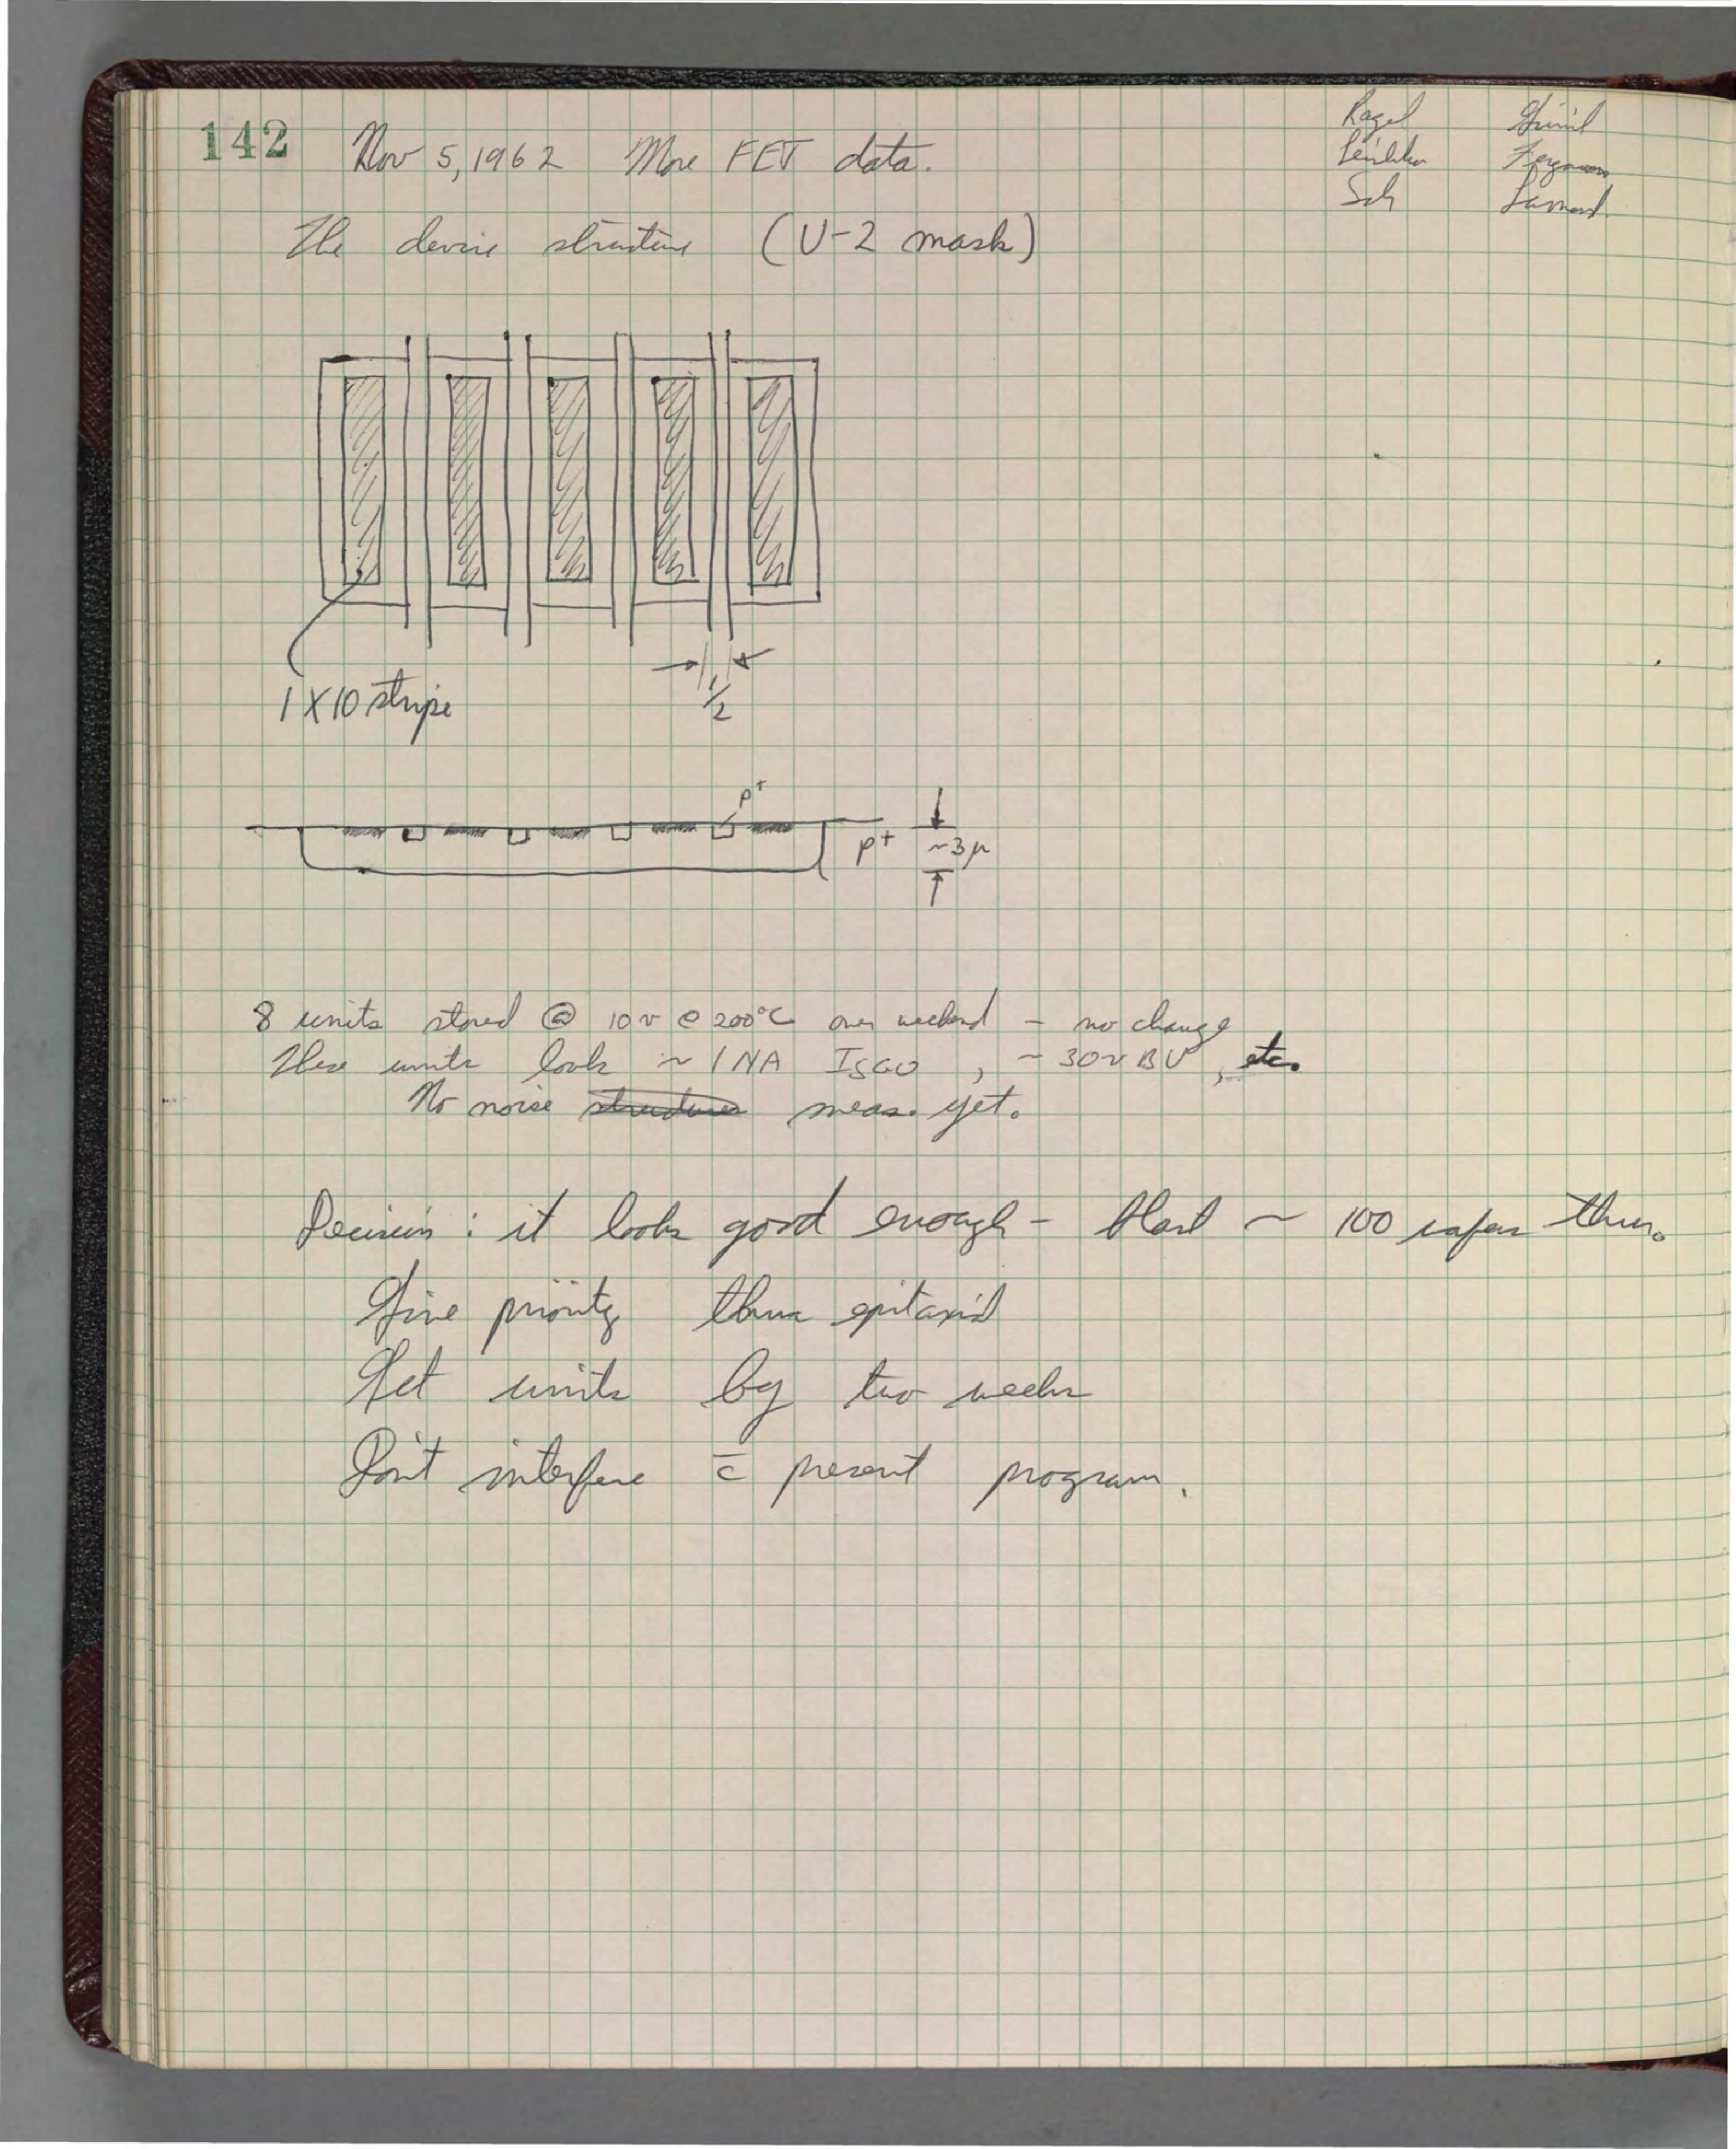 142 Nov 5, 1962 More FET data.
Ragel
Ferguson
Sah
The device structure (U-2 mask)
1 X 10 stripe
1/2
p+
p+ ~3μ
8 units stored @ 10v @ 200°C over weekend – no change
These units look ~ 1 NA ISGO, ~ 30v BV, etc.
No noise structures meas. yet.
Decision: it looks good enough – blast ~ 100 wafers thru.
Give priority thru epitaxial
Get units by two weeks
Don't interfere c̄ present program.